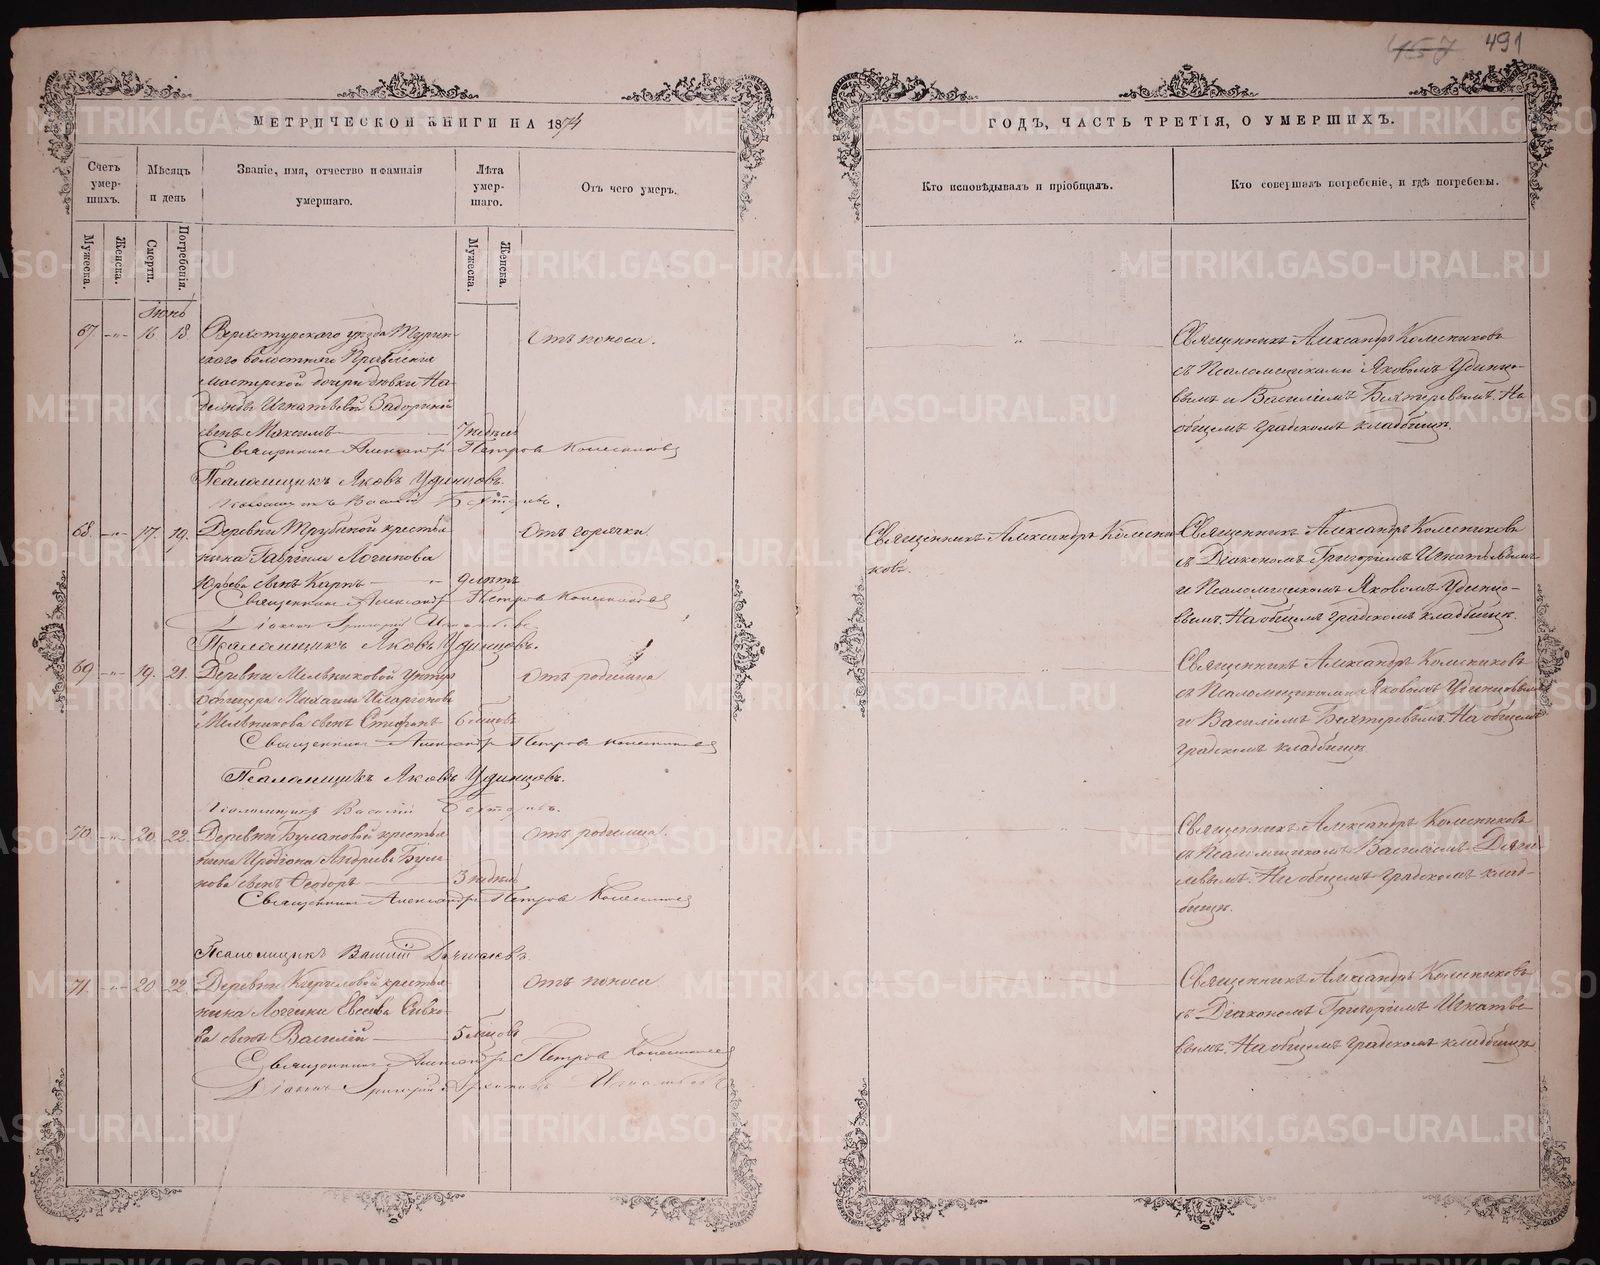 457 491
МЕТРИЧЕСКОЙ КНИГИ НА 1874
Счетъ умер-шихъ.
Мѣсяцъ и день
Званіе, имя, отчество и фамилія умершаго.
Лѣта умер-шаго.
Отъ чего умеръ.
Мужеска.
Женска.
Смерти.
Погребенія.
Мужеска.
Женска.
Іюнь
67 -"- 16 18 Верхотурскаго уѣзда Турин-
скаго волостнаго Правленія
мастерской дочери дѣвки На-
дежды Игнатьевой
сынъ Максимъ 7 недѣль
Отъ поноса.
Священникъ Александръ Петровъ Колесниковъ
Псаломщикъ Яковъ Удинцовъ.
Псаломщикъ Василій Бехтеревъ.
68 -"- 17. 19. Деревни Трубиной крестья-
нина Гавріила Логинова
Юрьева сынъ Карпъ 9 лѣтъ
Отъ горячки
Священникъ Александръ Петровъ Колесниковъ
Діаконъ Григорій Игнатьевъ
Псаломщикъ Яковъ Удинцовъ.
69 -"- 19. 21. Деревни Мельниковой Унтеръ
Офицера Михаила Иларіонова
Мельникова сынъ Стефанъ 6 мѣсцовъ
Отъ родимца
Священникъ Александръ Петровъ Колесниковъ
Псаломщикъ Яковъ Удинцовъ.
Псаломщикъ Василій Бехтеревъ.
70. -"- 20. 22. Деревни Булановой крестья-
нина Иродіона Андреева Була-
нова сынъ Ѳеодоръ 3 недѣли
Отъ родимца.
Священникъ Александръ Петровъ Колесниковъ
Псаломщикъ Василій Дягилевъ.
71. -"- 20 22 Деревни Кириловой крестья-
нина Логгина Евсеева Сивко-
ва сынъ Василій 5 мѣсцовъ
Отъ поноса
Священникъ Александръ Петровъ Колесниковъ
Діаконъ Григорій Игнатьевъ
ГОДЪ, ЧАСТЬ ТРЕТІЯ, О УМЕРШИХЪ.
Кто исповѣдывалъ и пріобщалъ.
Кто совершалъ погребеніе, и гдѣ погребены.
Священникъ Александръ Колесниковъ
съ Псаломщиками Яковомъ Удинцо-
вымъ и Василіемъ Бехтеревымъ. На
общемъ градскомъ кладбищѣ.
Священникъ Александръ Колесни-
ковъ.
Священникъ Александръ Колесниковъ
съ Діакономъ Григоріемъ Игнатьевымъ
и Псаломщикомъ Яковомъ Удинцо-
вымъ. На общемъ градскомъ кладбищѣ.
Священникъ Александръ Колесниковъ
съ Псаломщиками Яковомъ Удинцовымъ
и Василіемъ Бехтеревымъ. На общемъ
градскомъ кладбищѣ.
Священникъ Александръ Колесниковъ
съ Псаломщикомъ Василіемъ Дяги-
левымъ. На общемъ градскомъ клад-
бищѣ.
Священникъ Александръ Колесниковъ
съ Діакономъ Григоріемъ Игнатье-
вымъ. На общемъ градскомъ кладбищѣ.
METRIKI.GASO-URAL.RU